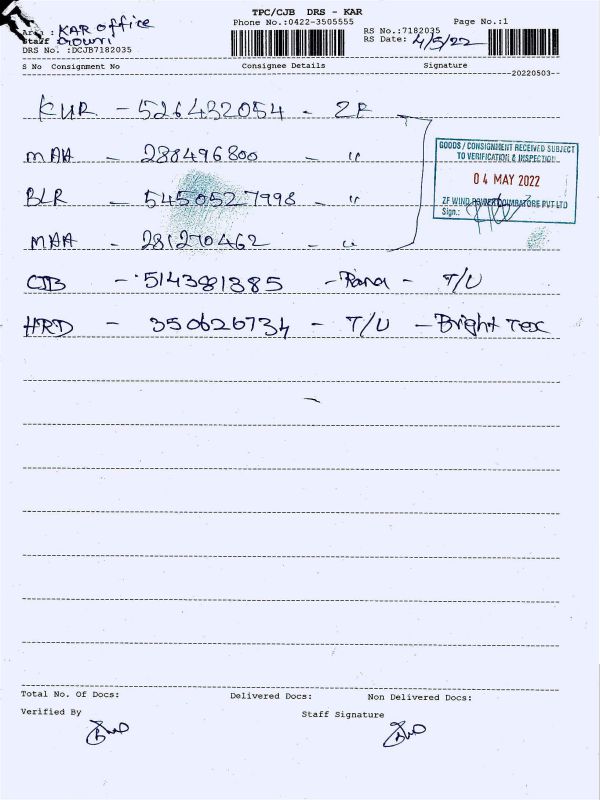 TPC/CJB DRS - KAR
Phone No.:0422-3505555
Page No.:1
Area : KAR office
Staff Gowri
DRS No. :DCJB7182035
RS No.:7182035
RS Date: 4/5/22
S No Consignment No Consignee Details Signature
20220503
KUR - 526432054 - ZF
MAA - 288496800 - "
BLR - 5450527998 - "
MAA - 281270462 - "
CJB - 514381385 - Rana - T/U
HRD - 350626734 - T/U - Bright Tex
GOODS / CONSIGNMENT RECEIVED SUBJECT
TO VERIFICATION & INSPECTION
04 MAY 2022
ZF WIND POWER COIMBATORE PVT LTD
Sign.:
Total No. Of Docs: Delivered Docs: Non Delivered Docs:
Verified By Staff Signature